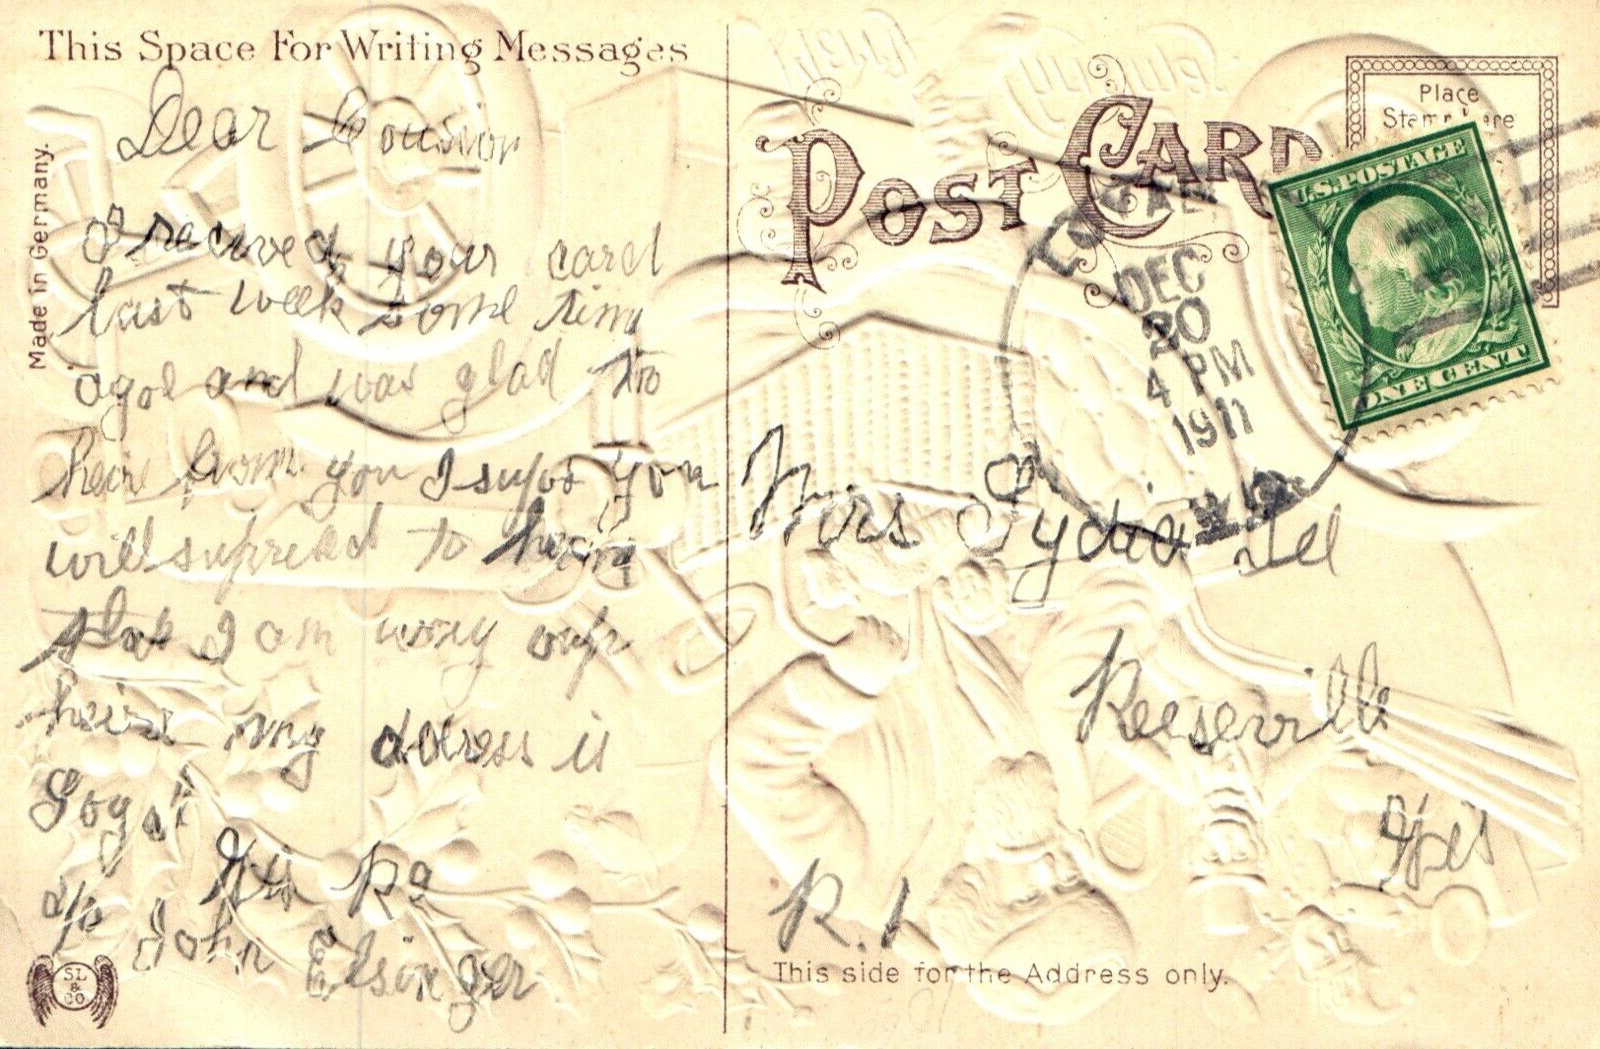 This Space For Writing Messages
Made in Germany.
Dear Cousion
I recived your card
last week some time
agoe and was glad to
heire from you I supos you
will suprised to
that I am way oup
heire my doress is
Wis R2
℅ John Elsinger
SL
&
CO
POST CARD
Place
Stamp Here
U.S. POSTAGE
ONE CENT
DEC
20
4 PM
1911
WIS.
Mrs Lydia
Reeseville
Wis
R. 1
This side for the Address only.